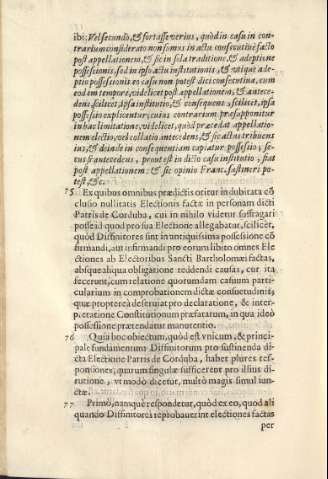 ibi: Vel secundò, & fortasse verius, quòd in casu in con-
trarium considerato non sumus in actu consecutivè facto
post appellationem, & sic in sola traditione, & adeptione
possessionis, sed in ipso actu institutionis, & utique ade-
ptio possessionis eo casu non potest dici consecutiva, cum
eodem tempore, videlicet post appellationem, & antece-
dens, scilicet, ipsa institutio, & consequens, scilicet, ipsa
possessio explicentur; cuius contrarium præsupponitur
in hac limitatione, videlicet, quòd præcedat appellatio-
nem electio, vel collatio antecedens, & sic actus tribuens
ius, & deinde in consequentiam capiatur possessio; se-
cus si antecedens, prout est in dicto casu institutio, fiat
post appellationem: & sic opinio Franc. sustineri po-
test, &c.
75 Ex quibus omnibus prædictis oritur indubitata cõ
clusio nullitatis Electionis factæ in personam dicti
Patris de Corduba, cui in nihilo videtur suffragari
posse id quod pro sua Electione allegabatur, scilicèt,
quòd Diffinitores sint in antiquissima possessione cõ
firmandi, aut infirmandi pro eorum libito omnes Ele
ctiones ab Electoribus Sancti Bartholomæi factas,
absque aliqua obligatione reddendi causas, cur ita
fecerunt, cum relatione quorumdam casuum parti-
cularium in comprobationem dictæ consuetudinis,
quæ proptereà deserviat pro declaratione, & inter-
pretatione Constitutionum præfatarum, in qua ideò
possessione prætendatur manutentio.
76 Quia hoc obiectum, quòd est vnicum, & princi-
pale fundamentum Diffinitorum pro sustinenda di-
cta Electione Patris de Corduba, habet plures res-
ponsiones, quarum singulæ sufficerent pro illius di-
rutione, vt modò dicetur, multò magis simul iun-
ctæ.
77 Primò, namque respondetur, quòd ex eo, quod ali
quando Diffinitores reprobaverint electiones factas
per